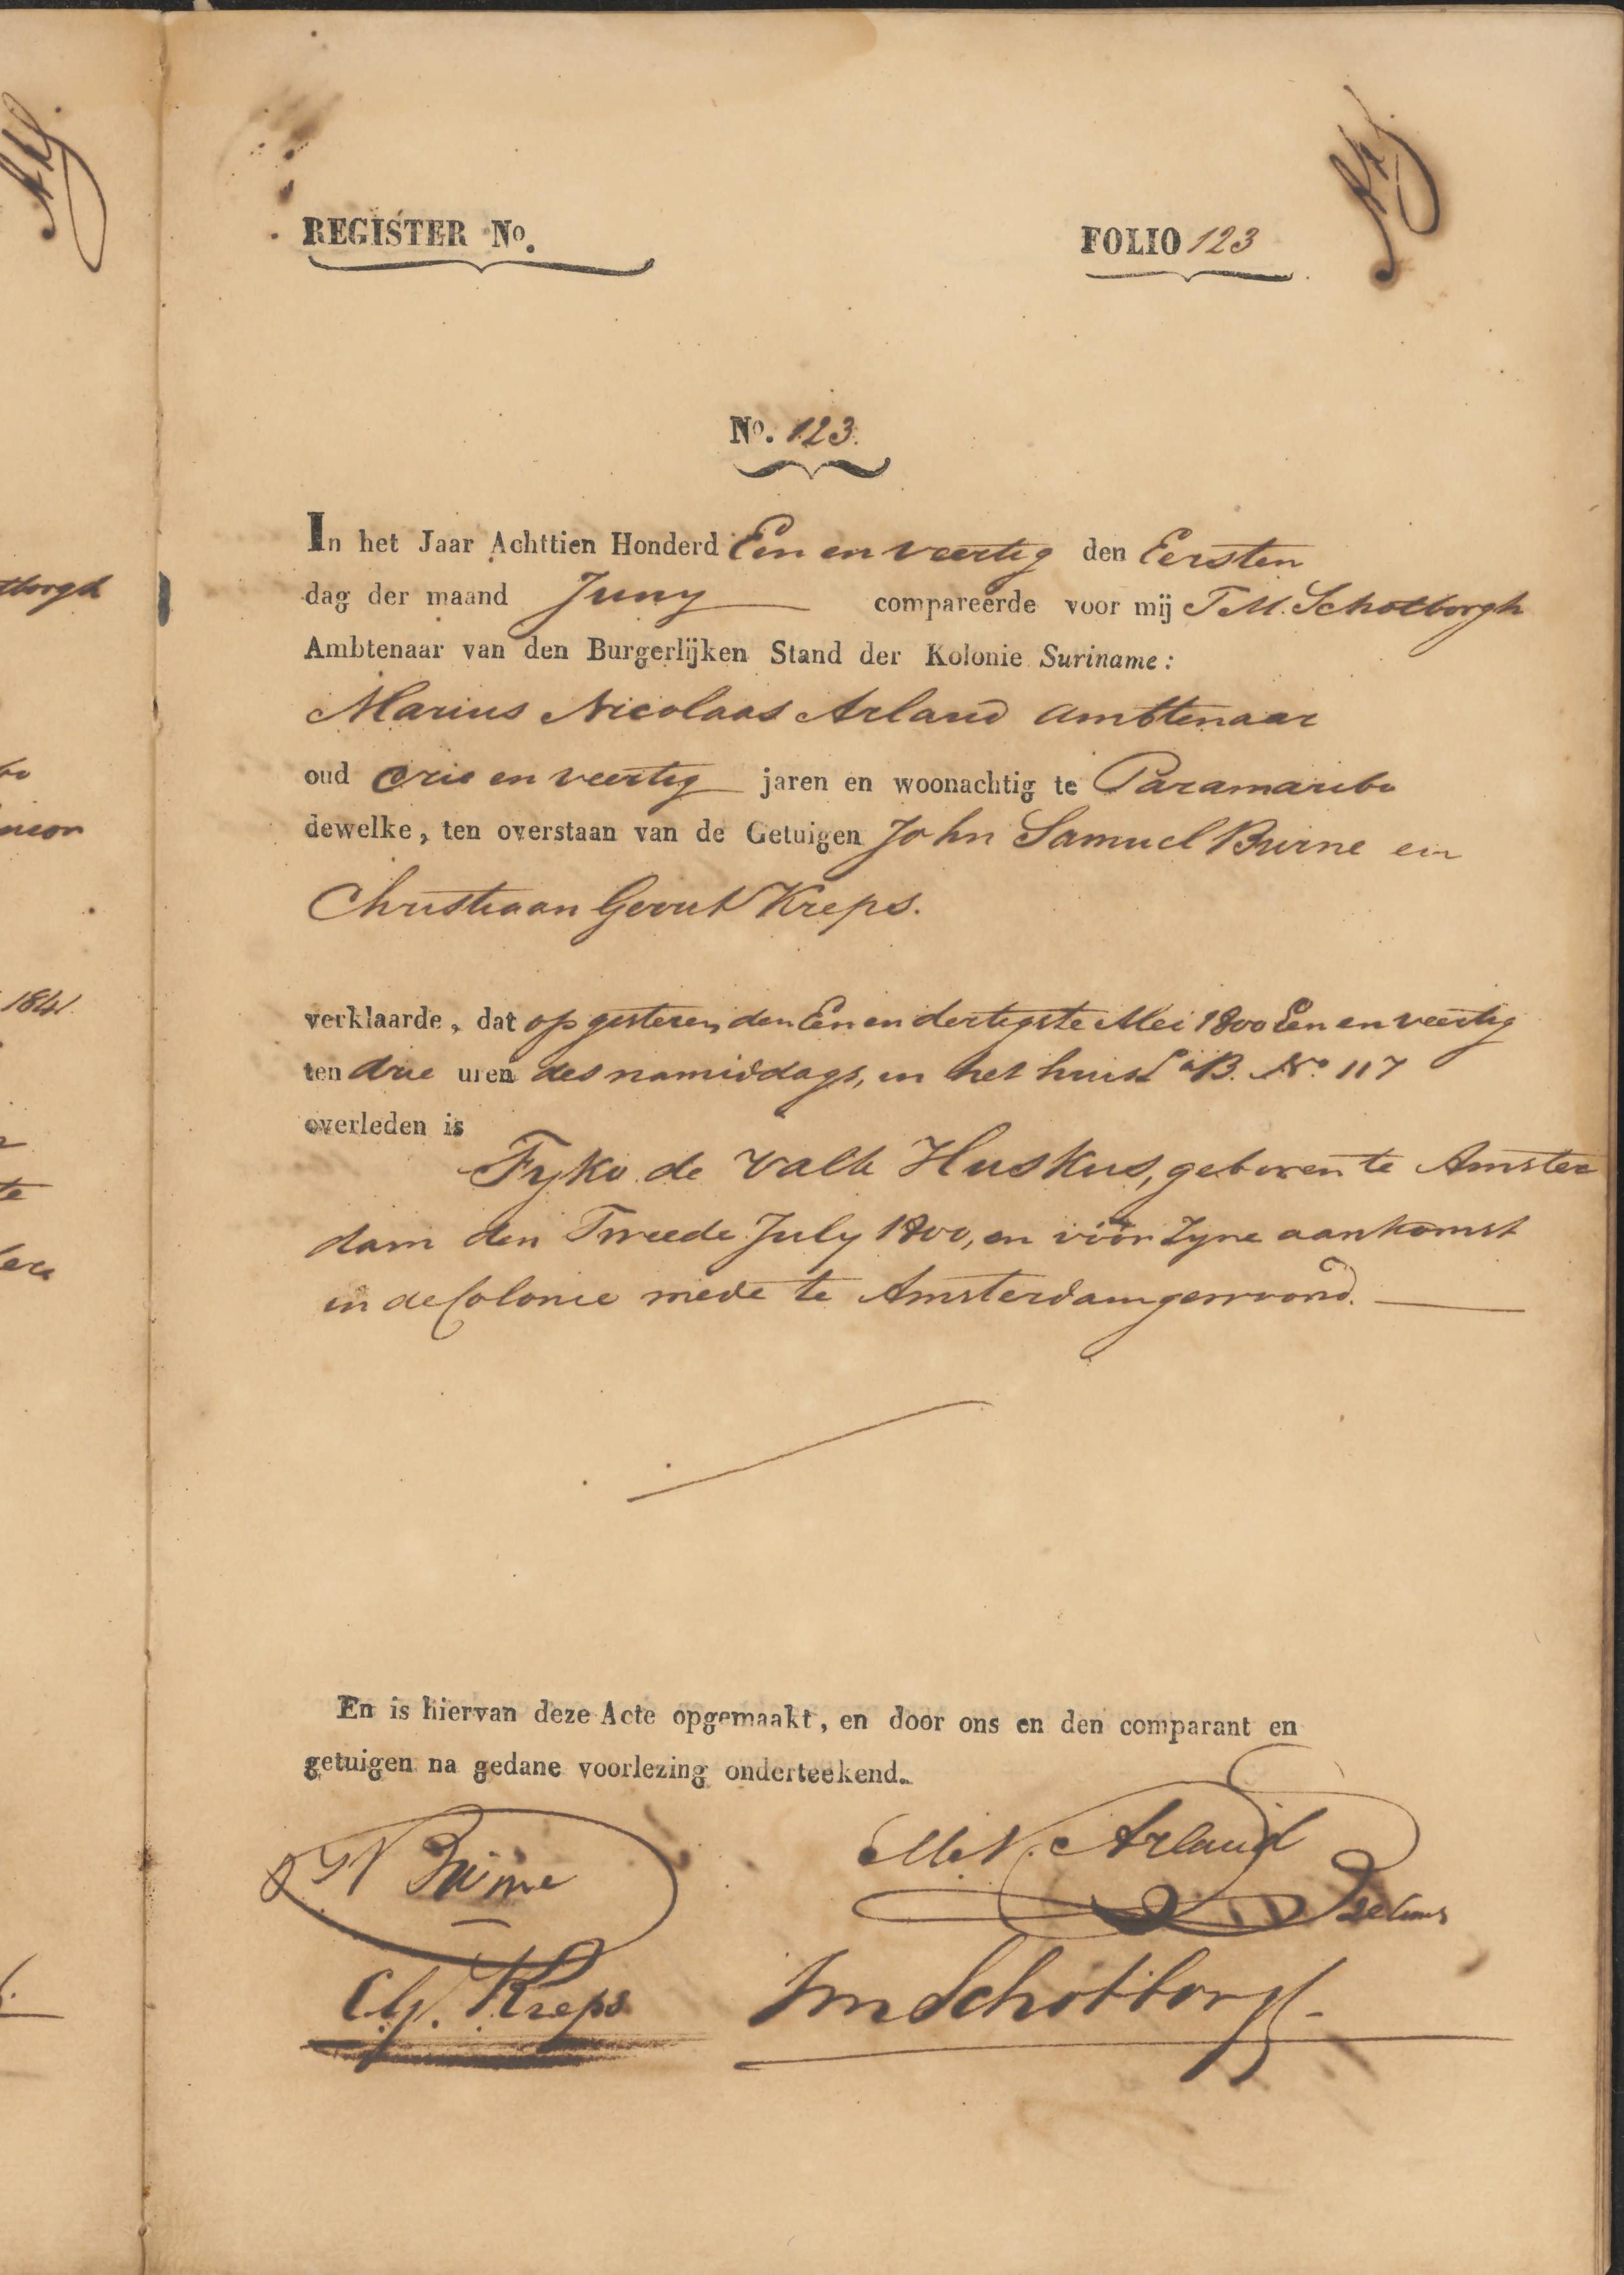 REGISTER No.
FOLIO 123
No. 123.
In het Jaar Achttien Honderd Een en veertig den Eersten
dag der maand Juny compareerde voor mij T.M. Schotborgh
Ambtenaar van den Burgerlijken Stand der Kolonie Suriname:
Marius Nicolaas Arlaud Ambtenaar
oud drie en veertig jaren en woonachtig te Paramaribo
dewelke, ten overstaan van de Getuigen John Samuel Buirne en
Christiaan Gerrit Kreps.
verklaarde, dat op gisteren, den Een en dertigste Mei 1800 Een en veertig
ten drie uren des namiddags, in het huis La B. No 117
overleden is
Fyko de Valk Huskus, geboren te Amster
dam den Tweede July 1800, en vóór zyne aankomst
in de Colonie mede te Amsterdam gewoond.
En is hiervan deze Acte opgemaakt, en door ons en den comparant en
getuigen na gedane voorlezing onderteekend.
M.N. Arlaud
C.G. Kreps
Schotborgh
1841.